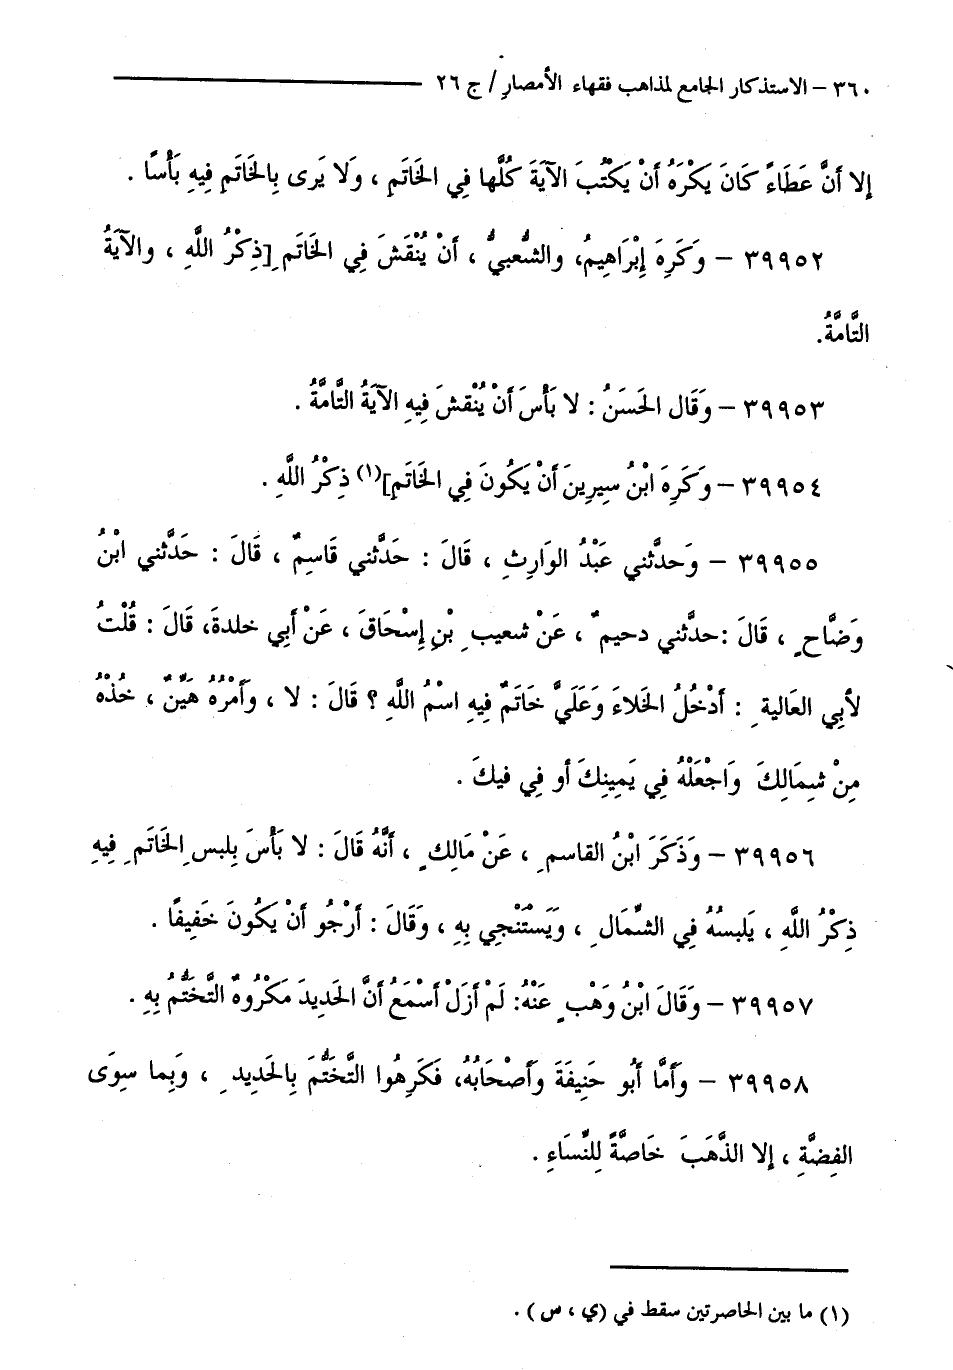 ٣٦٠ – الاستذكار الجامع لمذاهب فقهاء الأمصارِ / ج ٢٦
إلا أنَّ عَطَاءً كَانَ يَكْرَهُ أنْ يَكْتُبَ الآيَةَ كُلَّها فِي الخَاتَمِ ، ولَا يَرى بِالخَاتَمِ فِيهِ بَأْسًا .
٣٩٩٥٢ – وَكَرِهَ إِبْرَاهِيمُ، والشُّعبيُّ ، أنْ يُنْقَشَ فِي الخَاتَمِ [ذِكْرُ اللَّهِ ، والآيَةُ
التَّامَّةُ.
٣٩٩٥٣ – وَقَال الحَسَنُ : لا بأسَ أنْ يُنْقشَ فِيهِ الآيَةُ التَّامَّةُ .
٣٩٩٥٤ – وكَرِهَ ابْنُ سِيرِينَ أنْ يَكُونَ فِي الخَاتَمِ](١) ذِكْرُ اللَّهِ .
٣٩٩٥٥ – وَحدَّثني عَبْدُ الوَارِثِ ، قَالَ : حَدَّثني قَاسِمٌ ، قَالَ : حَدَّثني ابْنُ
وَضَّاحٍ ، قَالَ :حدَّثني دحيمٌ ، عَنْ شعيبِ بْنِ إِسْحَاقَ ، عَنْ أبي خلدةَ، قَالَ : قُلْتُ
لأبِي العَاليةِ : أدْخُلُ الخَلاءَ وَعَلَيَّ خَاتَمٌ فِيهِ اسْمُ اللَّهِ ؟ قَالَ : لا ، وأَمْرُهُ هَيِّنٌ ، خُذْهُ
مِنْ شِمَالِكَ وَاجْعَلْهُ فِي يَمِينِكَ أو فِي فيكَ .
٣٩٩٥٦ – وَذَكَرَ ابْنُ القاسمِ ، عَنْ مَالِكٍ ، أنَّهُ قَالَ : لا بَأْسَ بِلبسِ الخَاتَمِ فِيهِ
ذِكْرُ اللَّهِ ، يَلبسُهُ فِي الشِّمَالِ ، وَيَسْتَنْجِي بِهِ ، وَقَالَ : أرْجُو أنْ يَكُونَ خَفِيفًا .
٣٩٩٥٧ – وَقَالَ ابْنُ وَهْبٍ عَنْهُ: لَمْ أزَلْ أسْمَعُ أنَّ الحَدِيدَ مَكْرُوهٌ التَّخَتُّمُ بِهِ .
٣٩٩٥٨ – وأَمَّا أَبُو حَنِيفَةَ وأَصْحَابُهُ، فَكَرِهُوا التَّخَتُّمَ بِالحَدِيدِ ، وَبِما سِوَى
الفِضَّةِ ، إلا الذَّهَبَ خَاصَّةً لِلنِّسَاءِ .
(١) ما بين الحاصرتين سقط في (ي ، س ) .